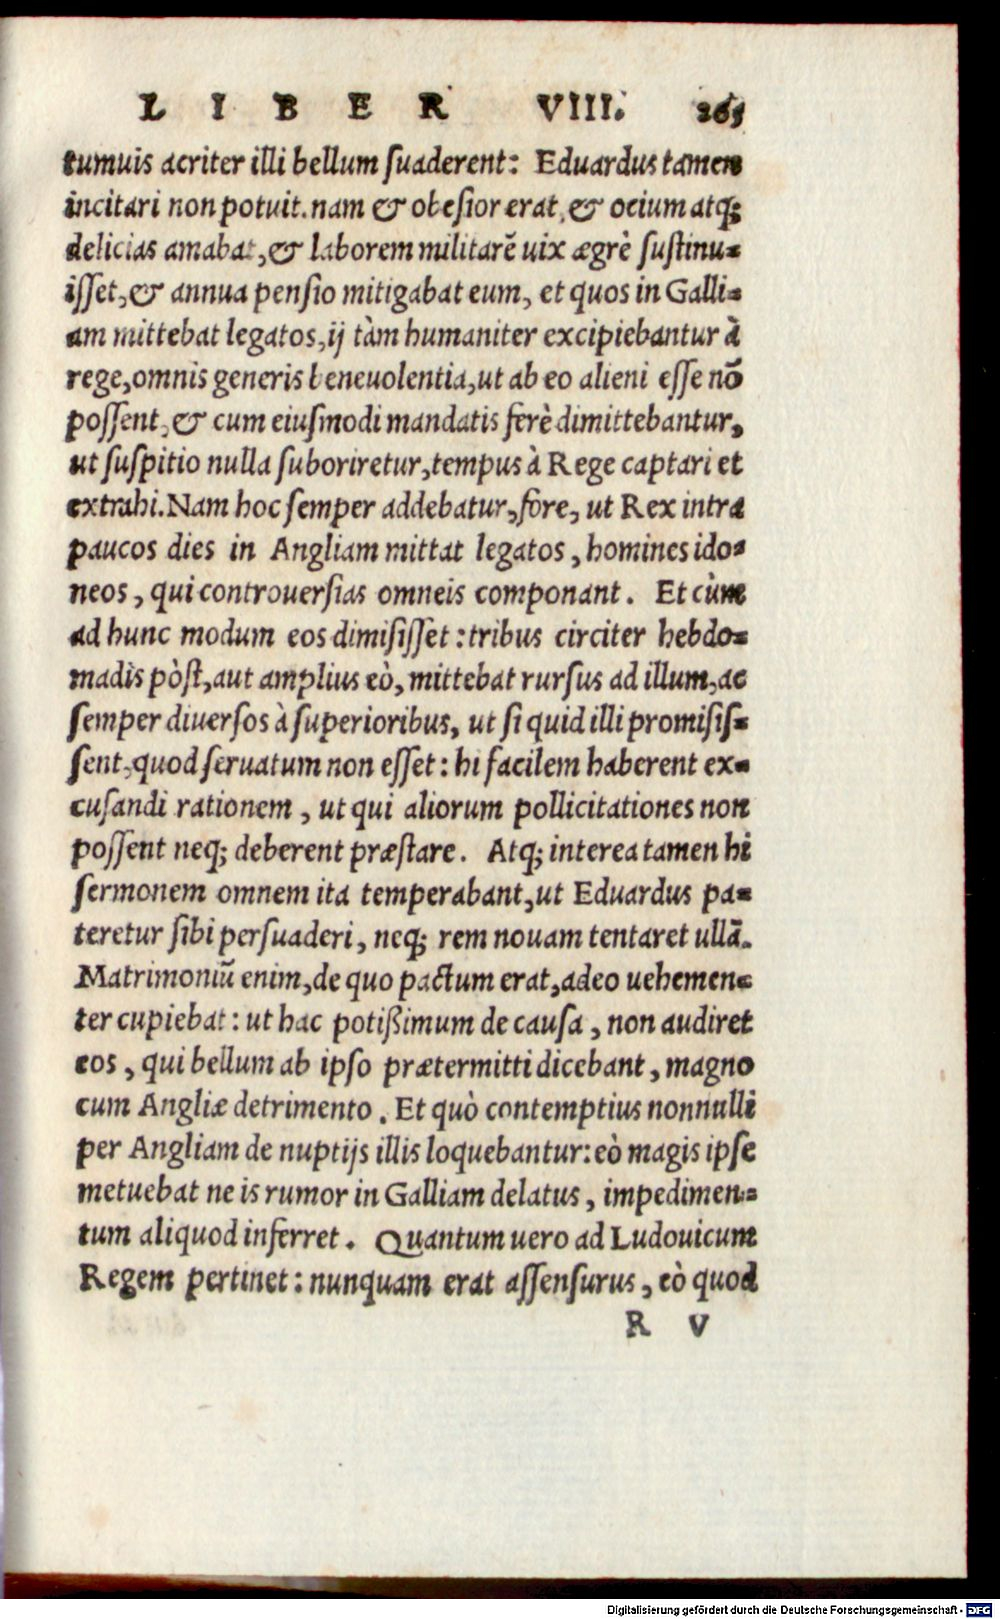 LIBER VIII. 265
tumuis acriter illi bellum ſuaderent: Eduardus tamen
incitari non potuit. nam & obeſior erat, & ocium atq;
delicias amabat, & laborem militarē uix ægrè ſuſtinu-
iſſet, & annua penſio mitigabat eum, et quos in Galli-
am mittebat legatos, ij tàm humaniter excipiebantur à
rege, omnis generis beneuolentia, ut ab eo alieni eſſe nō
poſſent, & cum eiuſmodi mandatis ferè dimittebantur,
ut ſuſpitio nulla ſuboriretur, tempus à Rege captari et
extrahi. Nam hoc ſemper addebatur, fore, ut Rex intra
paucos dies in Angliam mittat legatos, homines ido-
neos, qui controuerſias omneis componant. Et cùm
ad hunc modum eos dimiſiſſet: tribus circiter hebdo-
madis pòſt, aut amplius eò, mittebat rurſus ad illum, ac
ſemper diuerſos à ſuperioribus, ut ſi quid illi promiſiſ-
ſent, quod ſeruatum non eſſet: hi facilem haberent ex-
cuſandi rationem, ut qui aliorum pollicitationes non
poſſent neq; deberent præſtare. Atq; interea tamen hi
ſermonem omnem ita temperabant, ut Eduardus pa-
teretur ſibi perſuaderi, neq; rem nouam tentaret ullā.
Matrimoniū enim, de quo pactum erat, adeo uehemen-
ter cupiebat: ut hac potißimum de cauſa, non audiret
eos, qui bellum ab ipſo prætermitti dicebant, magno
cum Angliæ detrimento. Et quò contemptius nonnulli
per Angliam de nuptijs illis loquebantur: eò magis ipſe
metuebat ne is rumor in Galliam delatus, impedimen-
tum aliquod inferret. Quantum uero ad Ludouicum
Regem pertinet: nunquam erat aſſenſurus, eò quod
R V
Digitalisierung gefördert durch die Deutsche Forschungsgemeinschaft - DFG